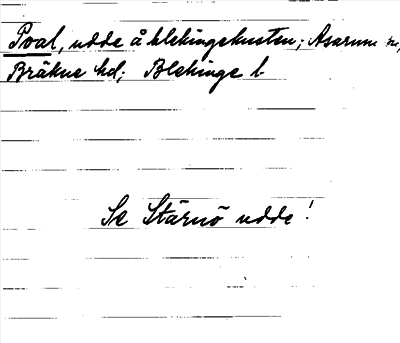 Poal, udde å blekingekusten; Asarums sn,
Bräkne hd; Blekinge l.
Se Stärnö udde!